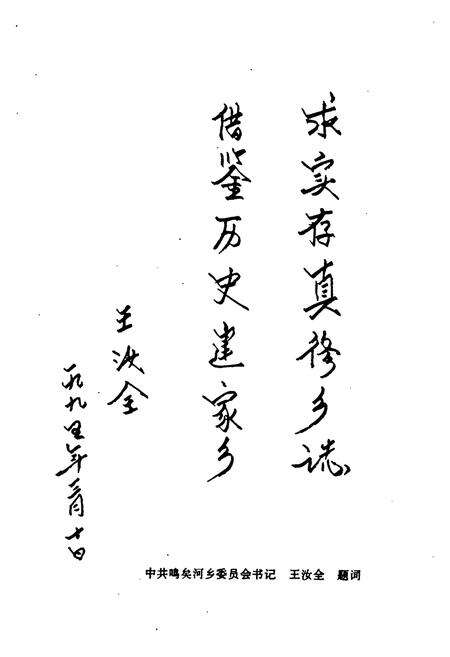 求实存真修乡志
借鉴历史建家乡
王汝全
一九九五年三月十日
中共鸣矣河乡委员会书记 王汝全 题词